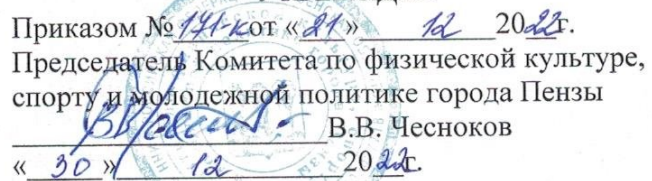 Приказом № 171-к от «21» 12 2022г.
Председатель Комитета по физической культуре,
спорту и молодежной политике города Пензы
В.В. Чесноков
«30» 12 2022г.